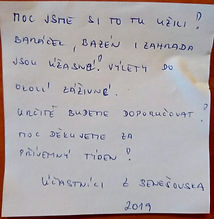 MOC JSME SI TO TU UŽILI!
BARÁČEK, BAZÉN I ZAHRADA
JSOU ÚŽASNÉ! VÝLETY DO
OKOLÍ ZÁŽIVNÉ.
URČITĚ BUDEME DOPORUČOVAT!
MOC DĚKUJEME ZA
PŘÍJEMNÝ TÝDEN!
ÚČASTNÍCI Z BENEŠOVSKA
2019